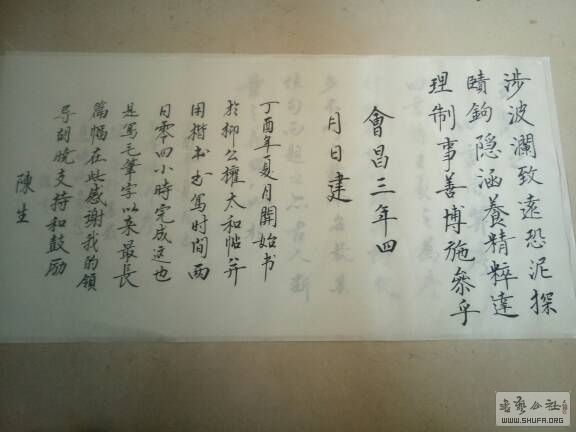 涉波瀾致遠恐泥探
賾鉤隐涵養精粹達
理制事善博施參乎
會昌三年四
月日建
丁酉年夏月開始书
於柳公權太和帖并
用楷书书写时间两
日零四小時完成这也
是寫毛筆字以来最長
篇幅在此感謝我的領
导胡晓支持和鼓励
陳生
书艺公社
WWW.SHUFA.ORG